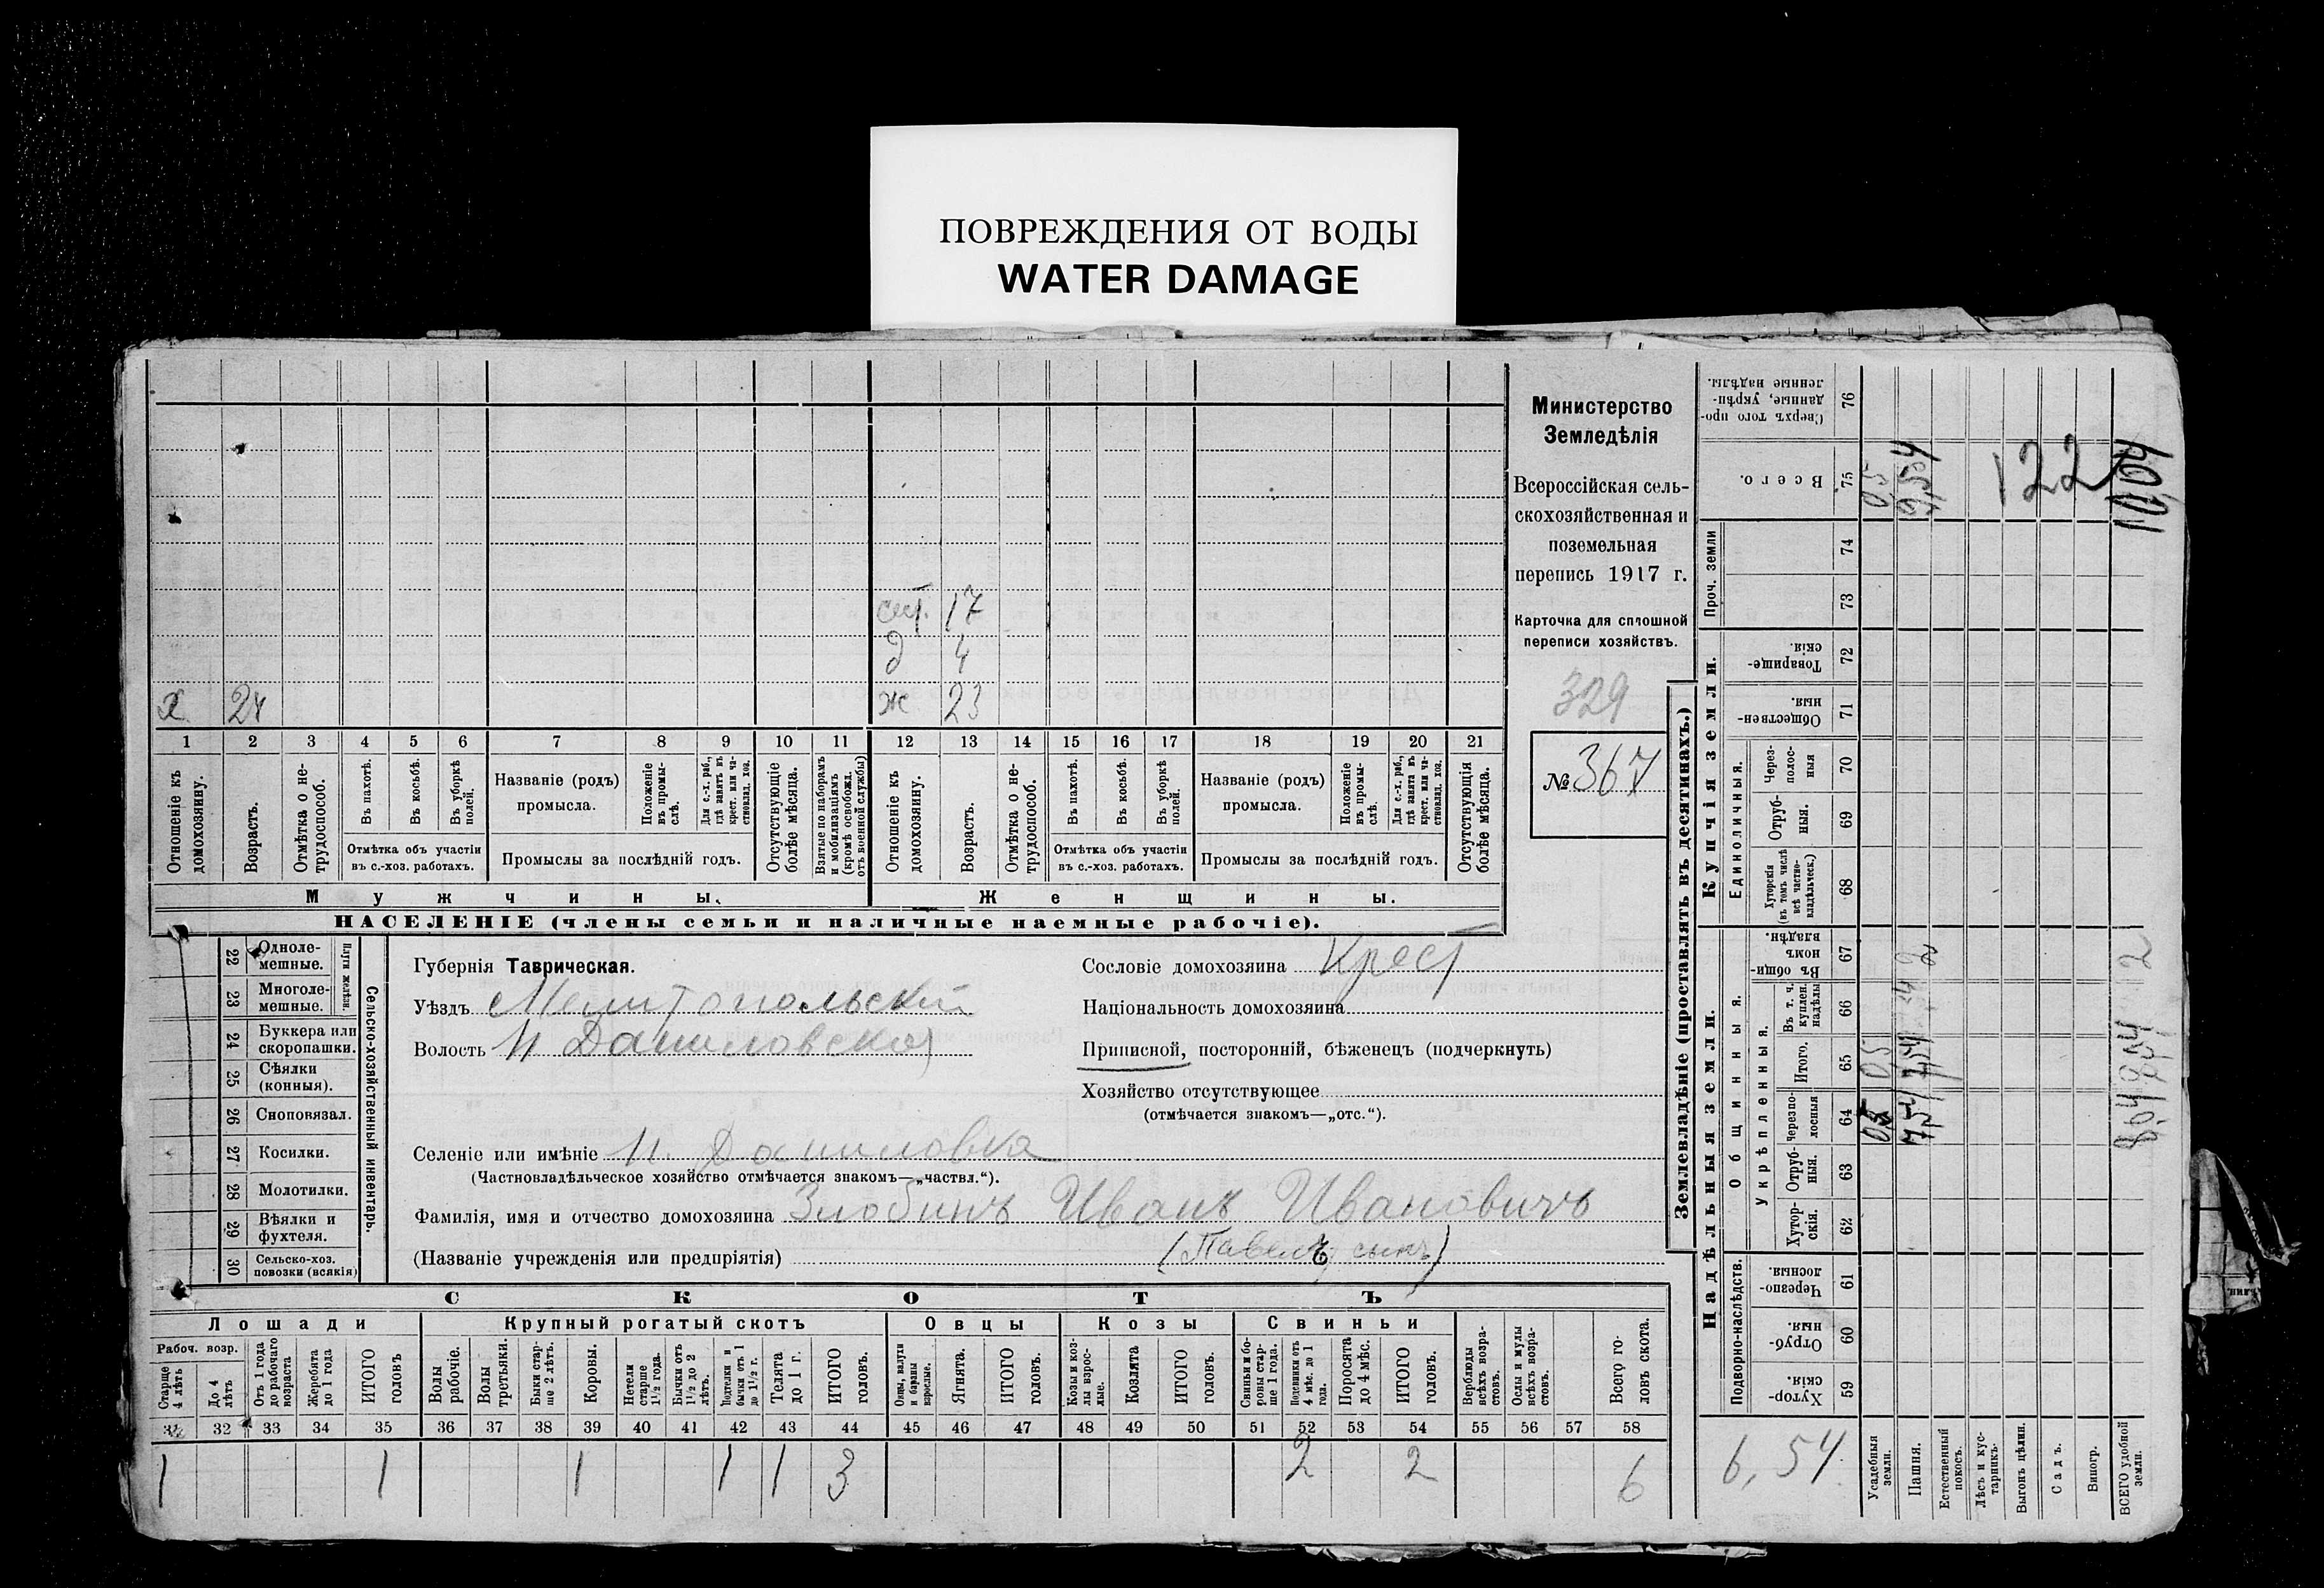 ПОВРЕЖДЕНИЯ ОТ ВОДЫ
WATER DAMAGE
сест. 17
д 4
х 24 ж 23
1 2 3 4 5 6 7 8 9 10 11 12 13 14 15 16 17 18 19 20 21
Отношеніе къ домохозяину.
Возрастъ.
Отмѣтка о не-трудоспособ.
Въ пахотѣ.
Въ косьбѣ.
Въ уборкѣ полей.
Отмѣтка объ участіи въ с.-хоз. работахъ.
Названіе (родъ) промысла.
Положеніе въ промы-слѣ.
Для с.-х. раб., гдѣ занятъ въ крест. или ча-стновлад. хоз.
Промыслы за послѣдній годъ.
Отсутствующіе болѣе мѣсяца.
Взятые по наборамъ и мобилизаціямъ (кромѣ освобожд. отъ военной службы)
Отношеніе къ домохозяину.
Возрастъ.
Отмѣтка о не-трудоспособ.
Въ пахотѣ.
Въ косьбѣ.
Въ уборкѣ полей.
Отмѣтка объ участіи въ с.-хоз. работахъ.
Названіе (родъ) промысла.
Положеніе въ промы-слѣ.
Для с.-х. раб., гдѣ занятъ въ крест. или ча-стновлад. хоз.
Промыслы за послѣдній годъ.
Отсутствующія болѣе мѣсяца.
Мужчины. Женщины.
НАСЕЛЕНІЕ (члены семьи и наличные наемные рабочіе).
Министерство
Земледѣлія
Всероссійская сель-
скохозяйственная и
поземельная
перепись 1917 г.
Карточка для сплошной
переписи хозяйствъ.
329
№ 367
22 Одноле-мешные.
23 Многоле-мешные.
Плуги желѣзн.
24 Буккера или скоропашки.
25 Сѣялки (конныя).
26 Сноповязал.
27 Косилки.
28 Молотилки.
29 Вѣялки и фухтеля.
30 Сельско-хоз. повозки (всякія)
Сельско-хозяйственный инвентарь.
Губернія Таврическая.
Уѣздъ Мелитопольскій
Волость Н Даниловская
Сословіе домохозяина Крест
Національность домохозяина
Приписной, посторонній, бѣженецъ (подчеркнуть)
Хозяйство отсутствующее
(отмѣчается знакомъ—„отс.“).
Селеніе или имѣніе Н. Даниловка
(Частновладѣльческое хозяйство отмѣчается знакомъ—„частвл.“).
Фамилія, имя и отчество домохозяина Злобинъ Иванъ Ивановичъ
(Названіе учрежденія или предпріятія) (Павелъ сынъ)
СКОТЪ
Лошади Крупный рогатый скотъ Овцы Козы Свиньи
Рабоч. возр.
Старше 4 лѣтъ
До 4 лѣтъ
Отъ 1 года до рабочаго возраста
Жеребята до 1 года
ИТОГО головъ
Волы рабочіе.
Волы третьяки.
Быки стар-ше 2 лѣтъ.
Коровы.
Нетели старше 1½ года.
Бычки отъ 1½ до 2 лѣтъ.
Подтелки и бычки отъ 1 до 1½ г.
Телята до 1 г.
ИТОГО головъ.
Овцы, валухи и бараны взрослые.
Ягнята.
ИТОГО головъ.
Козы и коз-лы взрос-лые.
Козлята
ИТОГО головъ.
Свиньи и бо-ровы стар-ше 1 года.
Подсвинки отъ 4 мѣс. до 1 года.
Поросята до 4 мѣс.
ИТОГО головъ.
Верблюды всѣхъ возра-стовъ.
Ослы и мулы всѣхъ возра-стовъ.
Всего го-ловъ скота.
31 32 33 34 35 36 37 38 39 40 41 42 43 44 45 46 47 48 49 50 51 52 53 54 55 56 57 58
1 1 1 1 1 3 2 2 6
Землевладѣніе (проставлять въ десятинахъ.)
Надѣльныя земли. Купчія земли. Проч. земли
Подворно-наслѣдств. Общинныя. Единоличныя.
Укрѣпленныя.
59 Хутор-скія.
60 Отруб-ныя.
61 Черезпо-лосныя.
62 Хутор-скія.
63 Отруб-ныя.
64 Черезпо-лосныя
65 Итого.
66 Въ т. ч. куплен. надѣлы
67 Въ общи-номъ владѣн.
68 Хуторскія (въ томъ числѣ всѣ частно-владѣльческ.)
69 Отруб-ныя.
70 Через-полос-ныя
71 Обществен-ныя.
72 Товарище-скія.
73
74
75 Всего.
76 Сверхъ того про-данные, укрѣп-ленные надѣлы.
6,54
Усадебныя земли. 05 05 0,5
Пашня. 7,54 7,54 2 9,54
Естественный покосъ.
Лѣсъ и кус-тарникъ.
Выгонъ цѣлин.
Садъ.
Виногр.
ВСЕГО удобной земли. 8,04 8,04 2 10,04
122